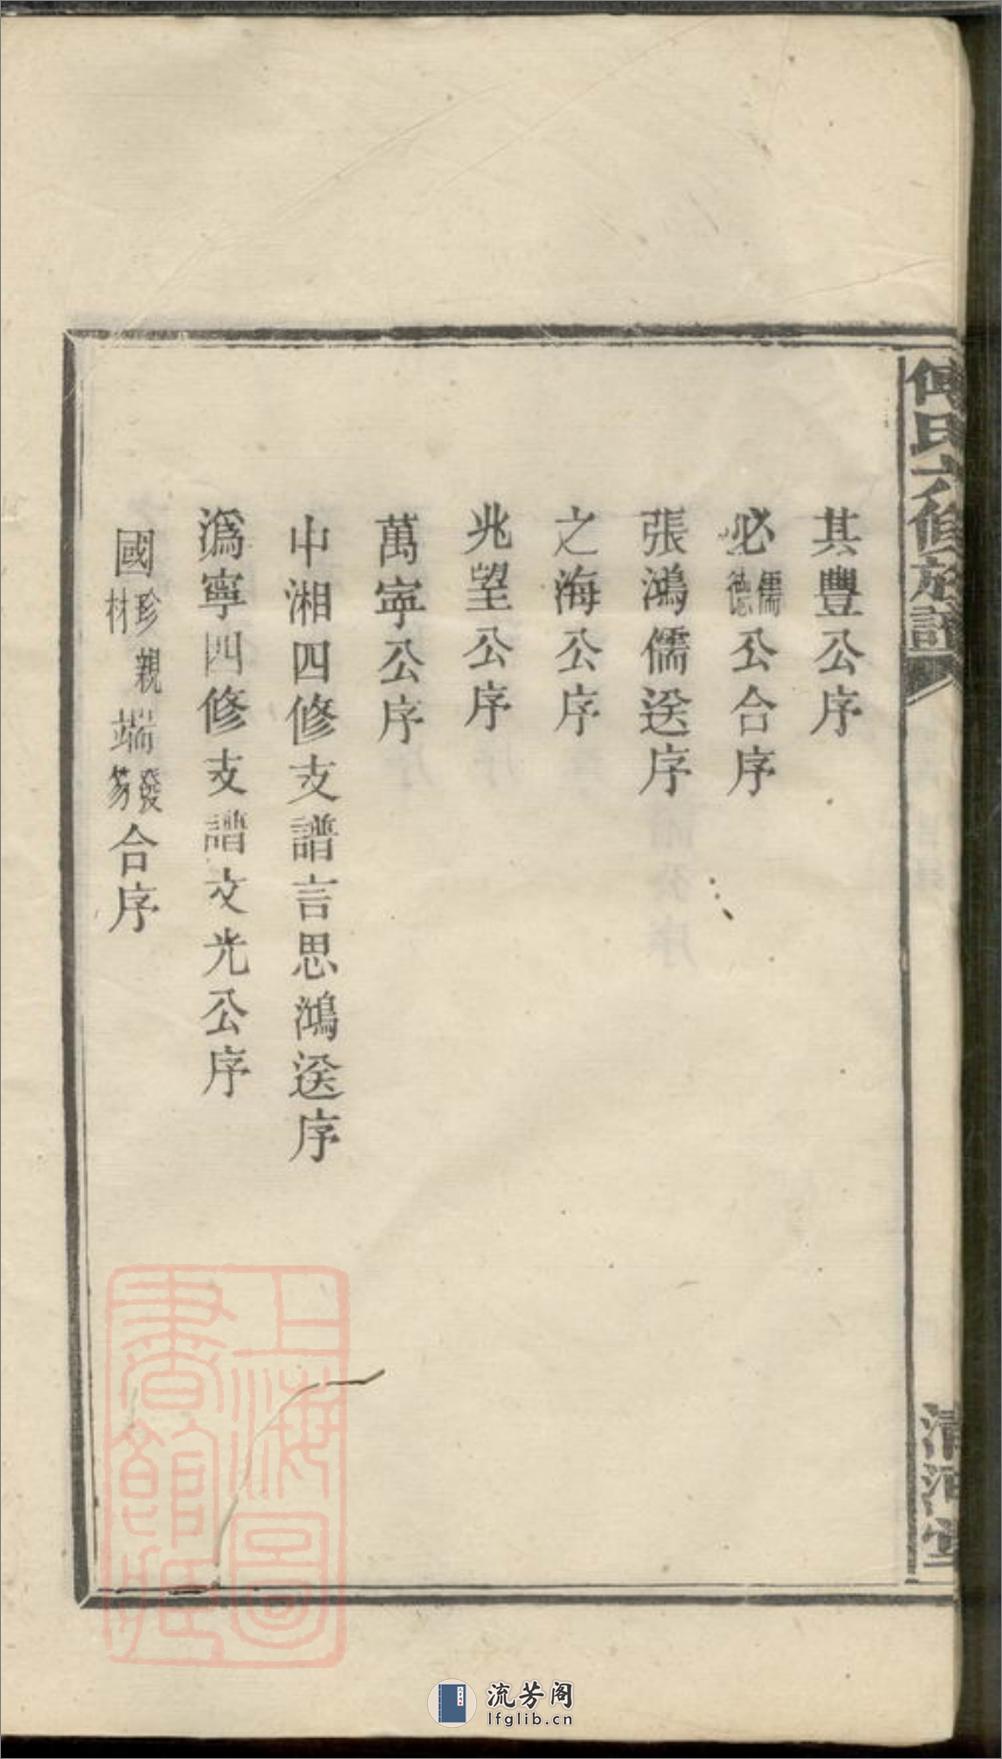 傅氏六修族譜
清河堂
其豐公序
必儒德公合序
張鴻儒送序
之海公序
兆望公序
萬寧公序
中湘四修支譜言思鴻送序
溈寧四修支譜文光公序
國珍材親端發合序
上海圖書館藏
流芳阁
lfglib.cn